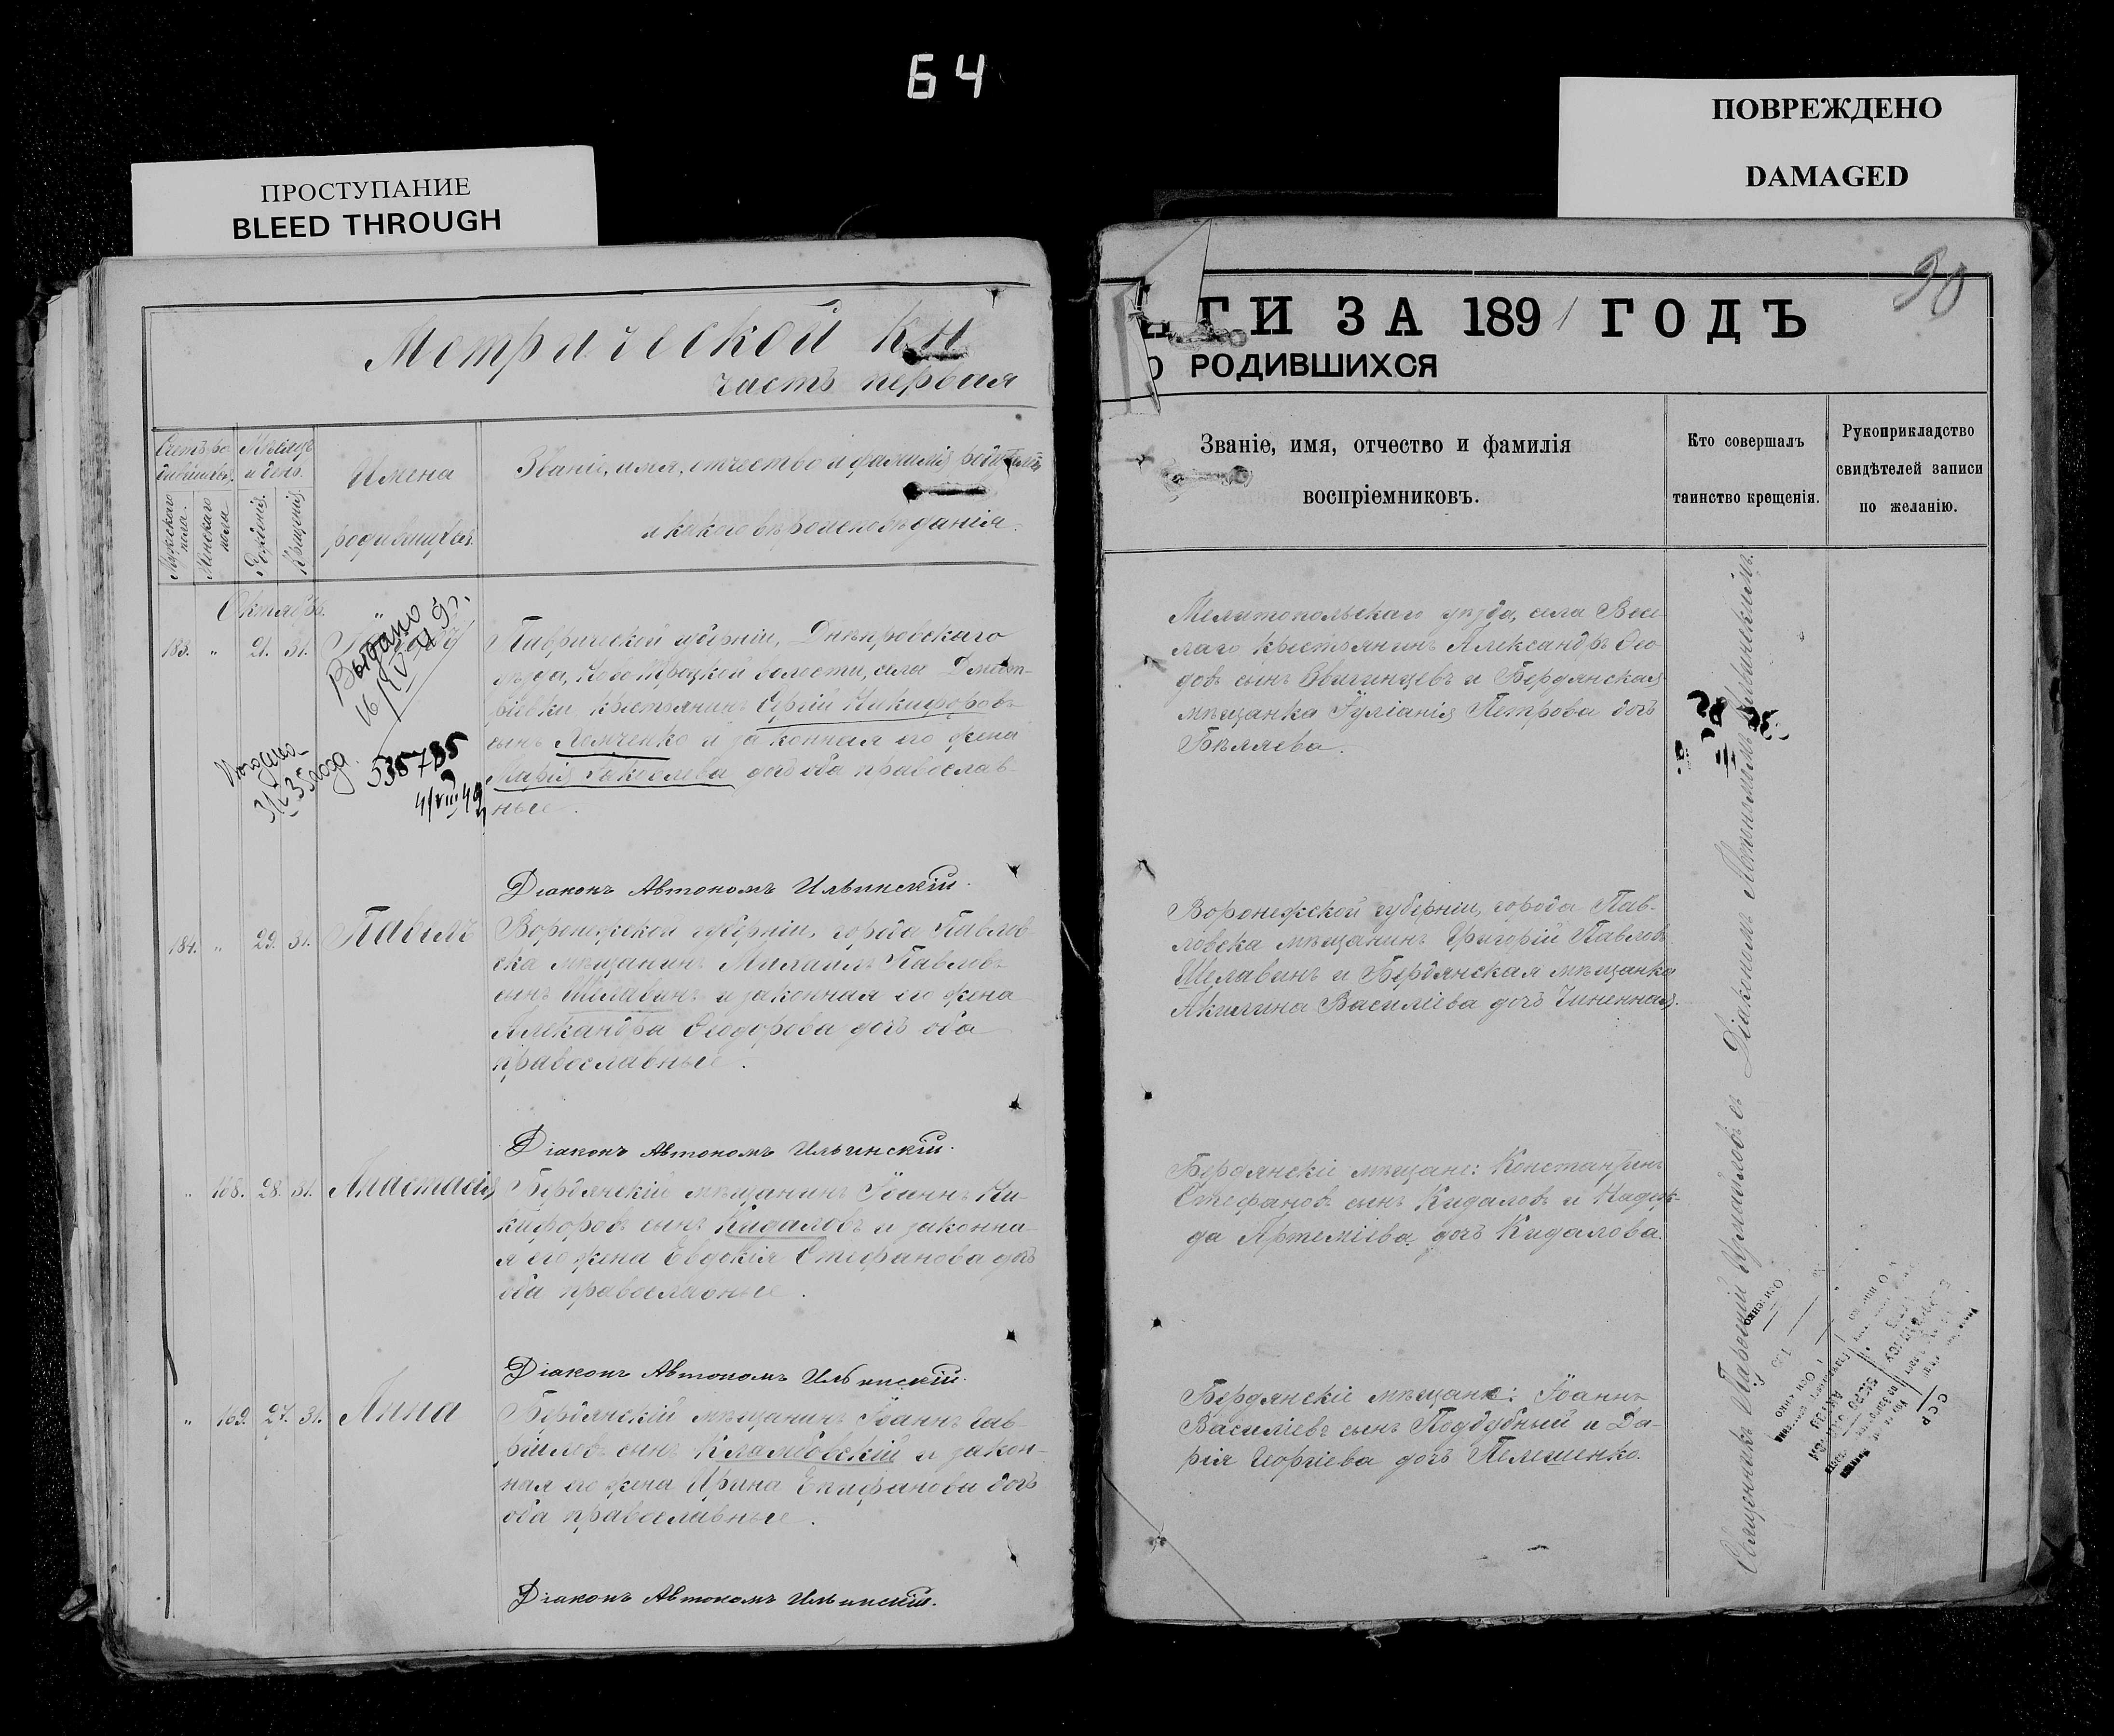 64
ПРОСТУПАНИЕ
BLEED THROUGH
ПОВРЕЖДЕНО
DAMAGED
Метрической кн
часть первая
Счетъ ро-
дившихся.
Мѣсяцъ
и день.
Мужского
пола.
Женскаго
пола
Рожденія.
Крещенія.
Имена
родившихся.
Званіе, имя, отчество и фамилія родителей
и какого вѣроисповѣданія.
Октябрь.
183. " 21. 31.
Выдано
535785
4/VIII 49
Таврической губерніи, Днѣпровскаго
уѣзда, волости, села Дмит-
ріевки крестьянинъ Сергій Никифоровъ
сынъ и законная его жена
Марія Яковлева дочь оба православ-
ные.
Діаконъ Автономъ Ильинскій.
184. " 29. 31. Павелъ
Воронежской губерніи, города Павлов-
ска мѣщанинъ Михаилъ Павловъ
сынъ Шелавинъ и законная его жена
Александра Ѳеодорова дочь оба
православные.
Діаконъ Автономъ Ильинскій.
" 168. 28. 31. Анастасія
Бердянскій мѣщанинъ Іоаннъ Ни-
кифоровъ сынъ Кидаловъ и законна-
я его жена Евдокія Стефанова дочь
оба православные.
Діаконъ Автономъ Ильинскій.
" 169. 27. 31. Анна
Бердянскій мѣщанинъ Іоаннъ Гав-
риловъ сынъ и закон-
ная его жена Ирина Епифанова дочь
оба православные.
Діаконъ Автономъ Ильинскій.
90
ГИ ЗА 1891 ГОДЪ
О РОДИВШИХСЯ
Званіе, имя, отчество и фамилія
воспріемниковъ.
Кто совершалъ
таинство крещенія.
Рукоприкладство
свидѣтелей записи
по желанію.
Мелитопольскаго уѣзда, села Весе-
лаго крестьянинъ Александръ Ѳео-
довъ сынъ Звигинцевъ и Бердянская
мѣщанка Іуліанія Петрова дочь
Бѣляева.
Воронежской губерніи, города Пав-
ловска мѣщанинъ Григорій Павловъ
Шелавинъ и Бердянская мѣщанка
Акилина Василіева дочь Чиненная.
Бердянскіе мѣщане: Константинъ
Стефановъ сынъ Кидаловъ и Надеж-
да Артеміева дочь Кидалова.
Бердянскіе мѣщане: Іоаннъ
Василіевъ сынъ Поддубный и Да-
рія Георгіева дочь Пелешенко.
Священникъ Измаиловъ съ Діакономъ Автономомъ Ильинскимъ.